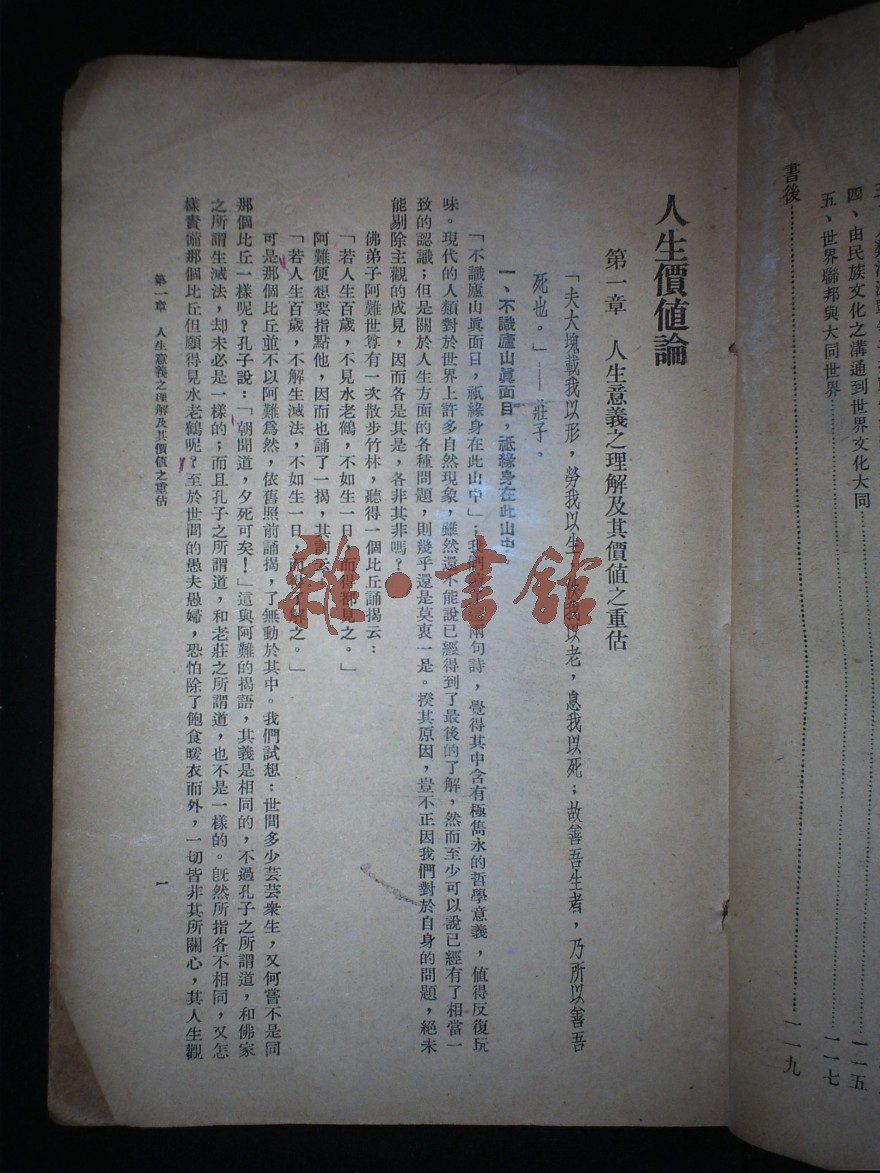 書後……一一九
五、世界聯邦與大同世界……一一七
四、由民族文化之溝通到世界文化大同……一一五
人生價值論
第一章 人生意義之理解及其價值之重估
「夫大塊載我以形,勞我以生,佚我以老,息我以死;故善吾生者,乃所以善吾
死也。」——莊子。
一、不識廬山眞面目,祇緣身在此山中。
「不識廬山眞面目,祇緣身在此山中」;我們 兩句詩,覺得其中含有極雋永的哲學意義,值得反復玩
味。現代的人類對於世界上許多自然現象,雖然還不能說已經得到了最後的了解,然而至少可以說已經有了相當一
致的認識;但是關於人生方面的各種問題,則幾乎還是莫衷一是。揆其原因,豈不正因我們對於自身的問題,絕未
能剔除主觀的成見,因而各是其是,各非其非嗎?
佛弟子阿難世尊有一次散步竹林,聽得一個比丘誦揭云:
「若人生百歲,不見水老鶴,不如生一日,而得都見之。」
阿難便想要指點他,因而也誦了一揭,其詞云:
「若人生百歲,不解生滅法,不如生一日,而得了解之。」
可是那個比丘並不以阿難爲然,依舊照前誦揭,了無動於其中。我們試想:世間多少芸芸衆生,又何嘗不是同
那個比丘一樣呢?孔子說:「朝聞道,夕死可矣!」這與阿難的揭語,其義是相同的,不過孔子之所謂道,和佛家
之所謂生滅法,却未必是一樣的;而且孔子之所謂道,和老莊之所謂道,也不是一樣的。旣然所指各不相同,又怎
樣責備那個比丘但願得見水老鶴呢?至於世間的愚夫愚婦,恐怕除了飽食暖衣而外,一切皆非其所關心,其人生觀
第一章 人生意義之理解及其價值之重估
一
雜·書館